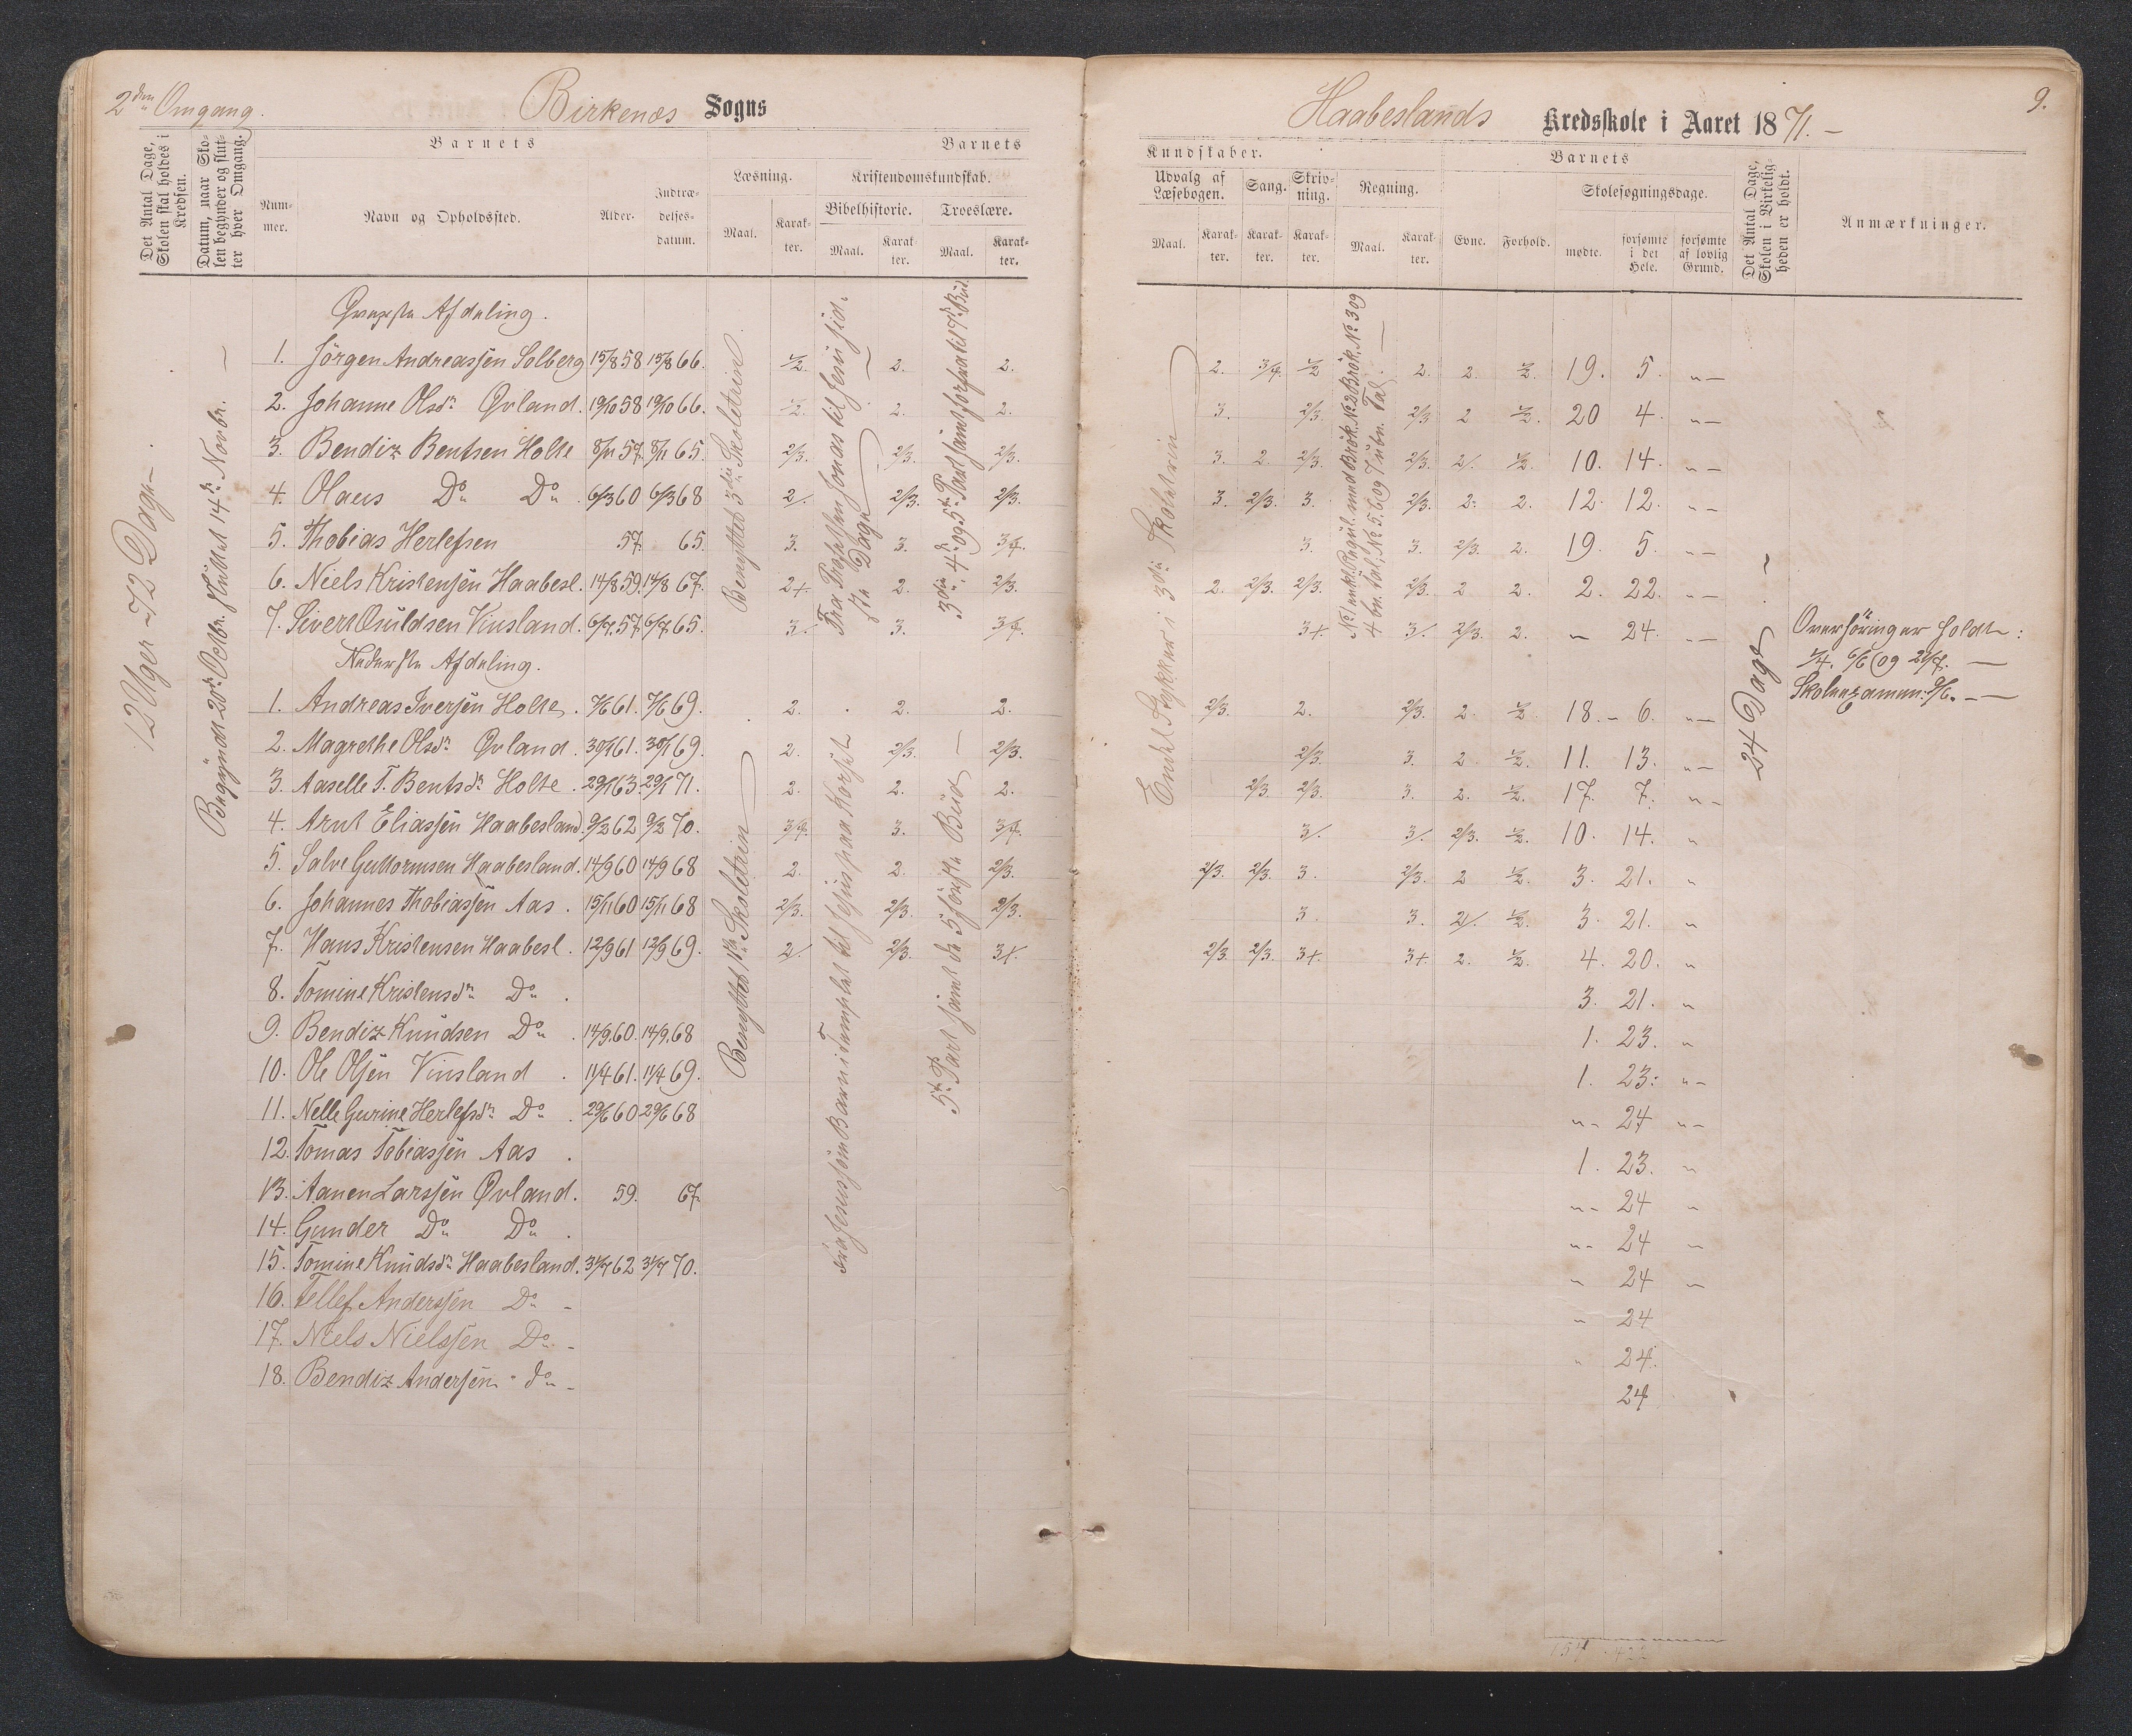 2den Omgang.
Birkenæs Sogns
Det Antal Dage, Skolen skal holdes i Kredsen.
Datum, naar Skolen begynder og slutter hver Omgang.
Barnets
Barnets
Num-
mer.
Navn og Opholdssted.
Alder.
Indtræ-
delses-
datum.
Læsning.
Kristendomskundskab.
Maal.
Karak-
ter.
Bibelhistorie.
Troeslære.
Maal.
Karak-
ter.
Maal.
Karak-
ter.
12 Uger = 72 Dage
Begyndt 20de Octbr. sluttet 14de Novbr.
Benyttet 3die Skoletrin
Fra Profeten Jonas til Jesu sid-
ste Dage
3die, 4de og 5te Part samt forfra til 7de Bud.
Øverste Afdeling.
1. Jörgen Andreassen Solberg 15/8 58 15/8 66. 1/2. 2. 2.
2. Johanne Olsdr. Øvland. 19/10 58 19/10 66. 1/2. 2. 2.
3. Bendix Bentsen Holte 8/11 57. 8/11 65. 2/3. 2/3. 2/3.
4. Olaus Do Do. 6/3 60 6/3 68 2/. 2/3. 2/3.
5. Thobias Herlefsen 57. 65. 3. 3. 3/4.
6. Niels Kristensen Haabesl. 14/8 59. 14/8 67. 2+. 2. 2/3.
7. Sivert Osuldsen Vinsland. 6/7. 57. 6/7. 65. 3/. 3. 3/4.
Nederste Afdeling.
Benyttet 1ste Skoletrin
Fra Jesus som Barn i Templet til Jesus paa Korset
5te Part samt de 5 første Bud
1. Andreas Iversen Holte. 7/6 61. 7/6 69. 2. 2. 2.
2. Magrethe Olsdr. Øvland. 30/1 61. 30/1 69. 2. 2/3. 2/3.
3. Aaselle T. Bentsdr. Holte. 29/1 63. 29/1 71. 2. 2. 2.
4. Arnt Eliassen Haabesland. 9/2 62 9/2 70. 3/4. 3. 3/4.
5. Salve Guttormsen Haabesland. 14/9 60 14/9 68 2. 2. 2/3.
6. Johannes Thobiassen Aas. 15/11 60 15/11 68 2/3. 2/3. 2/3.
7. Hans Kristensen Haabesl. 12/9 61 12/9 69. 2/. 2/3. 3+.
8. Tomine Kristensdr. Do.
9. Bendix Knudsen Do. 14/9. 60. 14/9. 68
10. Ole Olsen Vinsland. 11/4 61. 11/4 69.
11. Nelle Gurine Herlefsdr. Do. 29/6 60 29/6 68
12. Tomas Tobiassen Aas.
13. Aanen Larssen Øvland. 59. 67.
14. Gunder Do Do.
15. Tomine Knudsdr. Haabesland. 31/7 62 31/7 70.
16. Tellef Anderssen Do -
17. Niels Nielssen Do -
18. Bendix Andersen do -
Haabeslands Kredsskole i Aaret 1871. -
9.
Kundskaber.
Barnets
Udvalg af
Læsebogen.
Sang.
Skriv-
ning.
Regning.
Skolesøgningsdage.
Maal.
Karak-
ter.
Karak-
ter.
Karak-
ter.
Maal.
Karak-
ter.
Evne.
Forhold.
mødte.
forsømte
i det
Hele.
forsømte
af lovlig
Grund.
Det Antal Dage, Skolen i Virkelig-
heden er holdt.
Anmærkninger.
Endel Stykker i 3die Skoletrin
24 Dage
2. 3/4. 1/2 2. 2. 1/2. 19. 5. "-
3. 2/3. 2/3 2 1/2. 20 4. "-
3. 2. 2/3. 2/3. 2/. 1/2. 10. 14. "-
3. 2/3. 3. 2/3. 2. 2. 12. 12. "-
3. 3. 2/3. 2. 19. 5. "-
2. 2/3. 2/3. 2/3. 2 2. 2. 22. "-
3+. 3/. 2/3. 2. " 24. "-
Overhöringer holdte:
1/4. 6/6 og 27/7. -
Skoleexamen: 9/6. -
2/3. 2. 2/3. 2. 1/2. 18. 6. "-
2/3. 3. 2 1/2. 11. 13. "-
2/3. 2/3. 3. 2. 1/2. 17. 7. "-
3/. 3/. 2/3. 1/2. 10. 14. "
2/3. 2/3. 3. 2/3. 2 1/2. 3. 21. "
3. 3. 2/. 1/2. 3. 21. "
2/3. 2/3. 3+. 3+. 2. 1/2. 4. 20. "
3. 21. "
1. 23. "
1. 23. "-
"- 24 "-
1. 23. "
"- 24 "
"- 24 "
" 24 "
" 24
" 24.
24
154 422